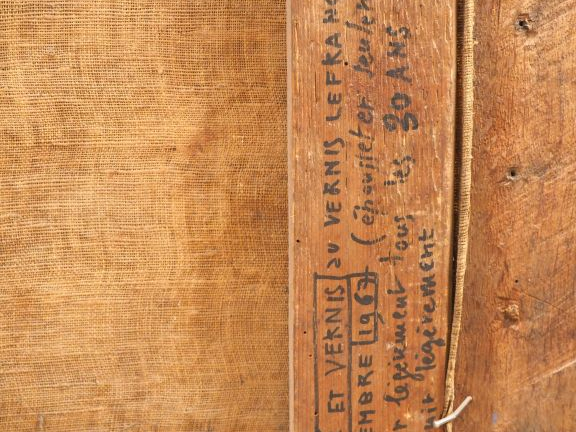 ET VERNIS AU VERNIS LEFRAN
EMBRE 1967 (épousseter seulem
légèrement tous les 30 ANS
légèrement